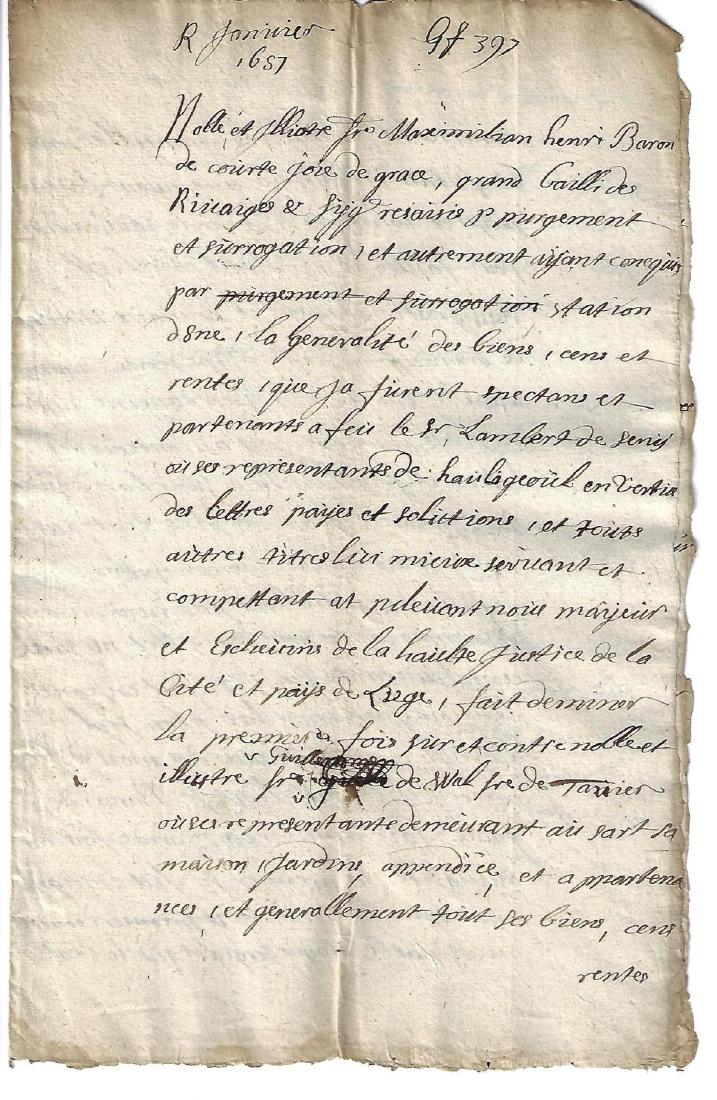 R Janvier Gf 397
1687
Noble et Illustre Sr Maximilian henri Baron
de courte Joie de grace, grand Bailli des
Rivaiges & resaisis p purgement
et surrogation, et autrement aijant conequis
par purgement et surrogation station
dsne, la Generalité des biens, cens et
rentes, que Ja furent spectans et
partenants a feu le Sr Lambert de
ou ses representants de en vertu
des lettres paijes et solutions, et touts
autres titres lui mieux servant et
competant at nous maijeur
et Escheuins de la haulte Justice de la
Cité et paijs de Liege, fait deminer
la premier fois sur et contre noble et
illustre Sr Guillaume de Wal Sre de Tavier
ou ses representants demeurant au sart sa
maison, Jardins, appendice, et apartena
nces, et generallement tout ses biens, cens
rentes